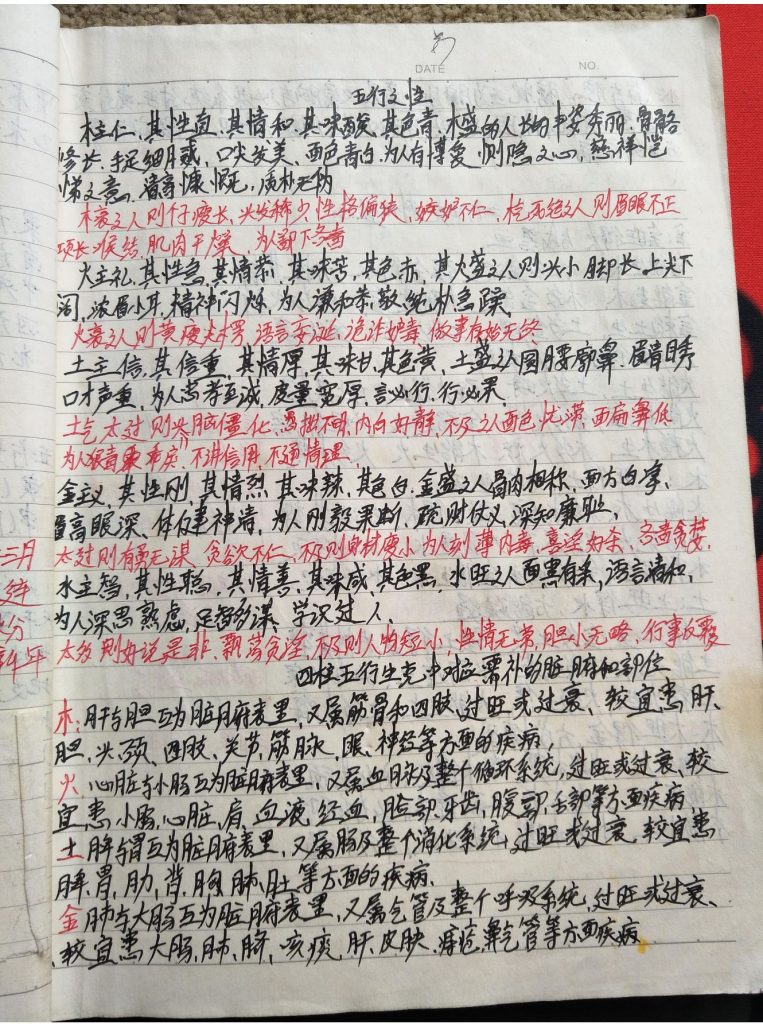 DATE NO.
五行之性
木主仁、其性直、其情和、其味酸、其色青、木盛的人长的丰姿秀丽、骨骼
修长、手足细腻、口尖发美、面色青白、为人有博爱、恻隐之心、慈祥恺
悌之意、清高慷慨、质朴无伪
木衰之人则仔瘦长、头发稀少、性格偏狭、嫉妒不仁、木死绝之人则眉眼不正
项长喉结、肌肉干燥、为人鄙下吝啬
火主礼、其性急、其情恭、其味苦、其色赤、其火盛之人则头小脚长、上尖下
阔、浓眉小耳、精神闪烁、为人谦和恭敬、纯朴急躁、
火衰之人则黄瘦尖楞、语言妄诞、诡诈妒毒、做事有始无终
土主信、其信重、其情厚、其味甘、其色黄、土盛之人圆腰廓鼻、眉清目秀
口才声重、为人忠孝至诚、度量宽厚、言必行、行必果、
土气太过则头脑僵化、愚拙不明、内向好静、不及之人面色忧滞、面扁鼻低
为人狠毒乖戾、不讲信用、不通情理、
金主义、其性刚、其情烈、其味辣、其色白、金盛之人骨肉相称、面方白净、
眉高眼深、体健神清、为人刚毅果断、疏财仗义、深知廉耻、
太过则有勇无谋、贪欲不仁、不及则身材瘦小、为人刻薄内毒、喜淫好杀、吝啬贪婪、
水主智、其性聪、其情善、其味咸、其色黑、水旺之人面黑有采、语言清和、
为人深思熟虑、足智多谋、学识过人、
太多则好说是非、飘荡贪淫、不及则人物短小、性情无常、胆小无略、行事反覆
四柱五行生克中对应需补的脏腑和部位
木：肝与胆互为脏腑表里、又属筋骨和四肢、过旺或过衰、较宜患肝、
胆、头、颈、四肢、关节、筋脉、眼、神经等方面的疾病、
火、心脏与小肠互为脏腑表里、又属血脉及整个循环系统、过旺或过衰、较
宜患小肠、心脏、肩、血液、经血、脸部、牙齿、腹部、舌部等方面疾病
土 脾与胃互为脏腑表里、又属肠及整个消化系统、过旺或过衰、较宜患
脾、胃、肋、背、胸、肺、肚等方面的疾病、
金 肺与大肠互为脏腑表里、又属气管及整个呼吸系统、过旺或过衰、
较宜患大肠、肺、脐、咳痰、肝、皮肤、痔疮、鼻气管等方面疾病
三月
年